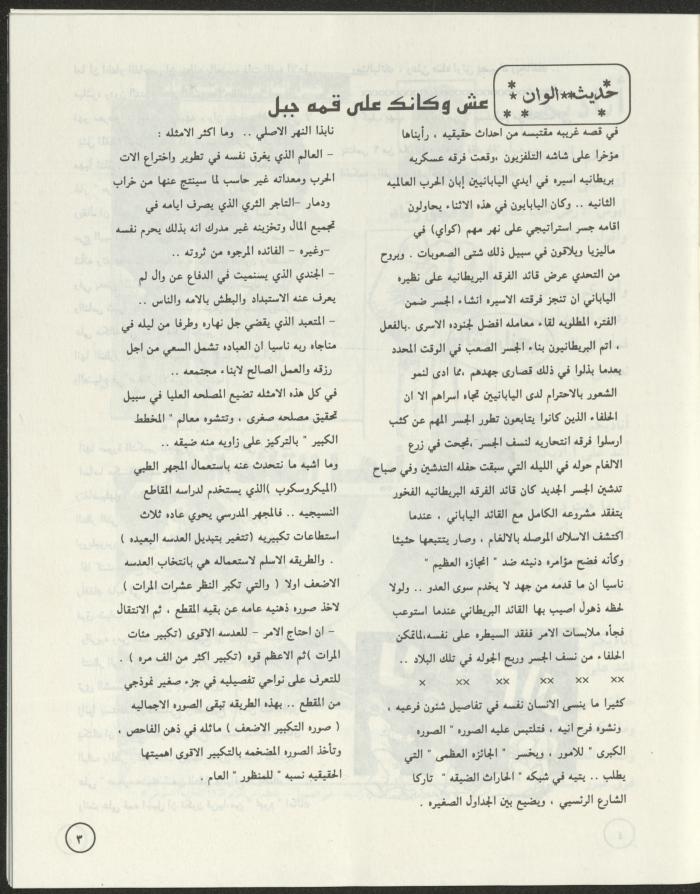 حديث الوان
عش وكانك على قمه جبل
في قصه غريبه مقتبسه من احداث حقيقيه ، رأيناها
مؤخرا على شاشه التلفزيون ،وقعت فرقه عسكريه
بريطانيه اسيره في ايدي اليابانيين إبان الحرب العالميه
الثانيه .. وكان اليابايون في هذه الاثناء يحاولون
اقامه جسر استراتيجي على نهر مهم (كواي) في
ماليزيا ويلاقون في سبيل ذلك شتى الصعوبات . وبروح
من التحدي عرض قائد الفرقه البريطانيه على نظيره
الياباني ان تنجز فرقته الاسيره انشاء الجسر ضمن
الفتره المطلوبه لقاء معامله افضل لجنوده الاسرى .بالفعل
، اتم البريطانيون بناء الجسر الصعب في الوقت المحدد
بعدما بذلوا في ذلك قصارى جهدهم ،مما ادى لنمو
الشعور بالاحترام لدى اليابانيين تجاه اسراهم الا ان
الحلفاء الذين كانوا يتابعون تطور الجسر المهم عن كثب
ارسلوا فرقه انتحاريه لنسف الجسر ،نجحت في زرع
الالغام حوله في الليله التي سبقت حفله التدشين وفي صباح
تدشين الجسر الجديد كان قائد الفرقه البريطانيه الفخور
يتفقد مشروعه الكامل مع القائد الياباني ، عندما
اكتشف الاسلاك الموصله بالالغام ، وصار يتتبعها حثيثا
وكأنه فضح مؤامره دنيئه ضد " انجازه العظيم "
ناسيا ان ما قدمه من جهد لا يخدم سوى العدو .. ولولا
لحظه ذهول اصيب بها القائد البريطاني عندما استوعب
فجأه ملابسات الامر ففقد السيطره على نفسه،لماتمكن
الحلفاء من نسف الجسر وربح الجوله في تلك البلاد ..
×× ×× ×× ×× × ×
كثيرا ما ينسى الانسان نفسه في تفاصيل شئون فرعيه ،
ونشوه فرح انيه ، فتلتبس عليه الصوره " الصوره
الكبرى " للامور ، ويخسر " الجائزه العظمى " التي
يطلب .. يتيه في شبكه " الحارات الضيقه " تاركا
الشارع الرئسيي ، ويضيع بين الجداول الصغيره .
نابذا النهر الاصلي .. وما اكثر الامثله :
– العالم الذي يغرق نفسه في تطوير واختراع الات
الحرب ومعداته غير حاسب لما سينتج عنها من خراب
ودمار –التاجر الثري الذي يصرف ايامه في
تجميع المال وتخزينه غير مدرك انه بذلك يحرم نفسه
–وغيره – الفائده المرجوه من ثروته ..
– الجندي الذي يسنميت في الدفاع عن وال لم
يعرف عنه الاستبداد والبطش بالامه والناس ..
– المتعبد الذي يقضي جل نهاره وطرفا من ليله في
مناجاه ربه ناسيا ان العباده تشمل السعي من اجل
رزقه والعمل الصالح لابناء مجتمعه ..
في كل هذه الامثله تضيع المصلحه العليا في سبيل
تحقيق مصلحه صغرى ، وتتشوه معالم " المخطط
الكبير " بالتركيز على زاويه منه ضيقه ..
وما اشبه ما نتحدث عنه باستعمال المجهر الطبي
(الميكروسكوب )الذي يستخدم لدراسه المقاطع
النسيجيه .. فالمجهر المدرسي يحوي عاده ثلاث
استطاعات تكبيريه (تتغير بتبديل العدسه البعيده )
. والطريقه الاسلم لاستعماله هي بانتخاب العدسه
الاضعف اولا ( والتي تكبر النظر عشرات المرات )
لاخذ صوره ذهنيه عامه عن بقيه المقطع ، ثم الانتقال
– ان احتاج الامر – للعدسه الاقوى (تكبير مئات
المرات )ثم الاعظم قوه (تكبير اكثر من الف مره ) .
للتعرف على نواحي تفصيليه في جزء صغير نموذجي
من المقطع .. بهذه الطريقه تبقى الصوره الاجماليه
( صوره التكبير الاضعف ) ماثله في ذهن الفاحص ،
وتأخذ الصوره المضخمه بالتكبير الاقوى اهميتها
الحقيقيه نسبه " للمنظور " العام .
٣